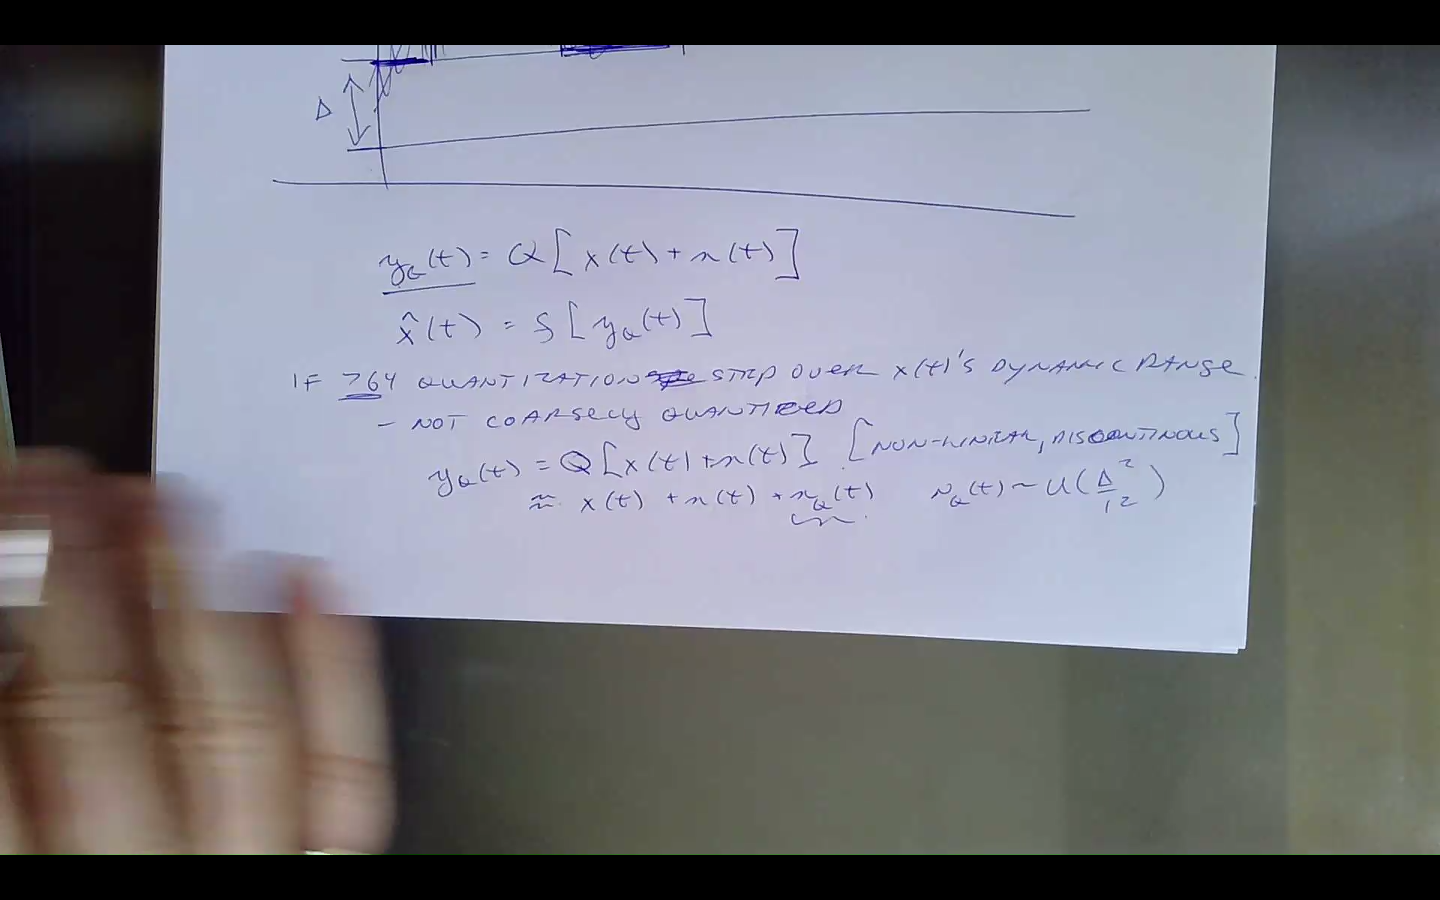 Δ
y_Q(t) = Q[x(t) + n(t)]
x̂(t) = S[y_Q(t)]
IF >64 QUANTIZATION STEP OVER x(t)'S DYNAMIC RANGE.
- NOT COARSELY QUANTIZED
y_Q(t) = Q[x(t) + n(t)] [NON-LINEAR, DISCONTINOUS]
≈ x(t) + n(t) + n_Q(t) N_Q(t) ~ U(Δ²/12)